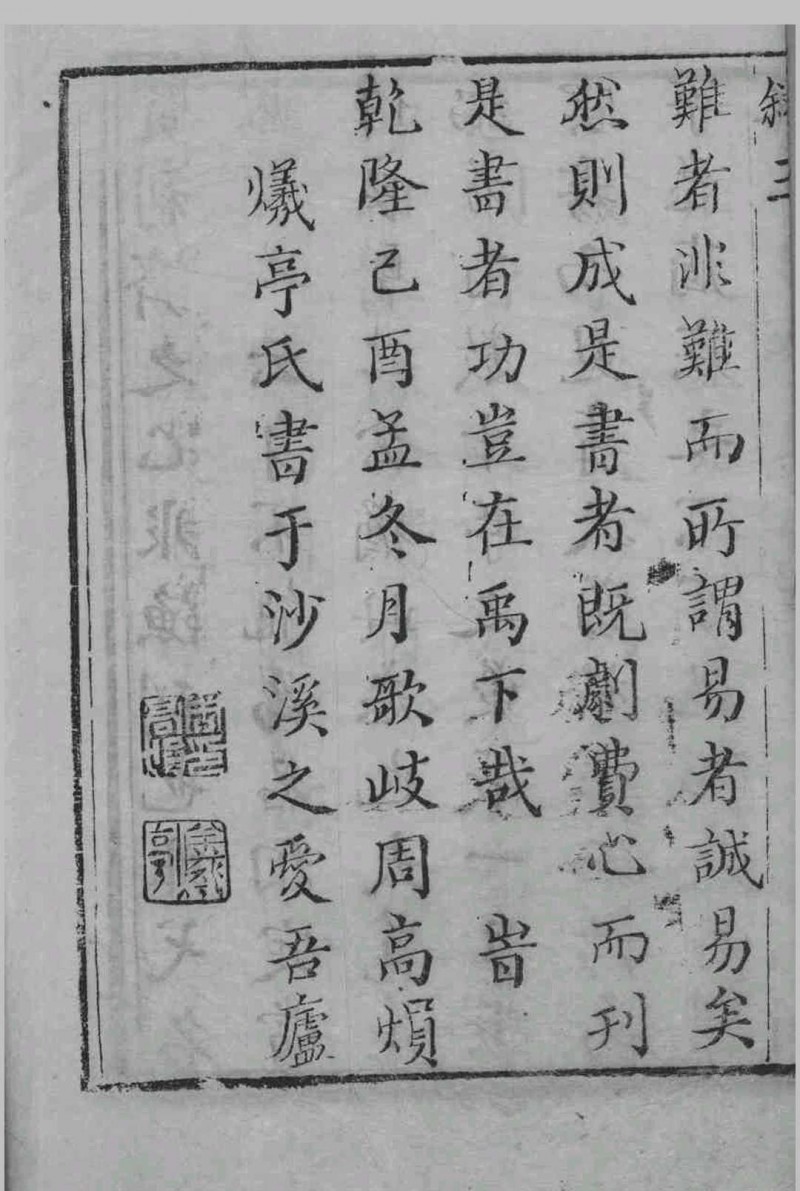 難者非難而所謂易者誠易矣
然則成是書者既劇費心而刊
是書者功豈在禹下哉 旹
乾隆己酉孟冬月歌岐周高熉
爔亭氏書于沙溪之愛吾廬